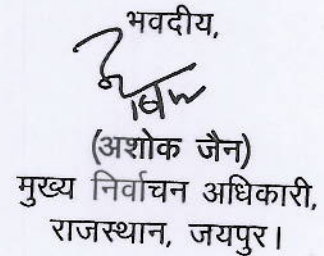 भवदीय,
(अशोक जैन)
मुख्य निर्वाचन अधिकारी,
राजस्थान, जयपुर।